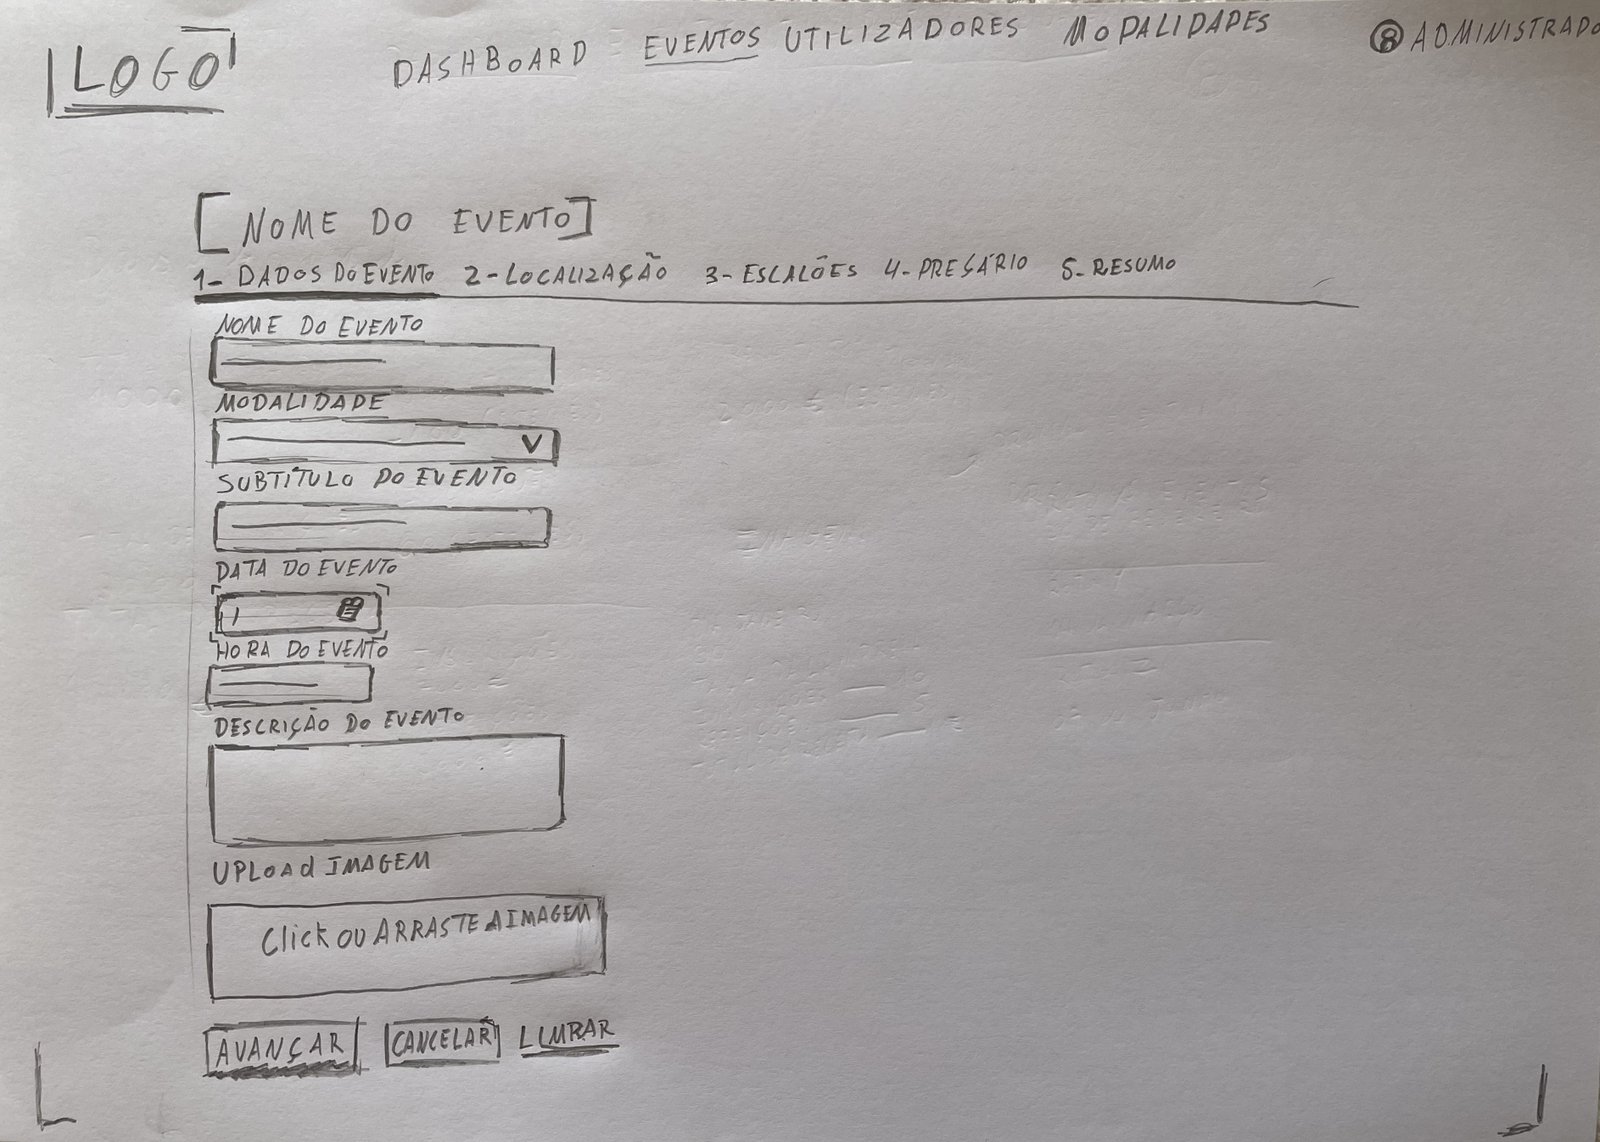 LOGO
DASHBOARD EVENTOS UTILIZADORES MODALIDADES ADMINISTRADO
[NOME DO EVENTO]
1- DADOS DO EVENTO 2-LOCALIZAÇÃO 3-ESCALÕES 4-PREÇÁRIO 5-RESUMO
NOME DO EVENTO
MODALIDADE
SUBTÍTULO DO EVENTO
DATA DO EVENTO
HORA DO EVENTO
DESCRIÇÃO DO EVENTO
UPLOAd IMAGEM
Click OU ARRASTE A IMAGEM
AVANÇAR CANCELAR LIMPAR